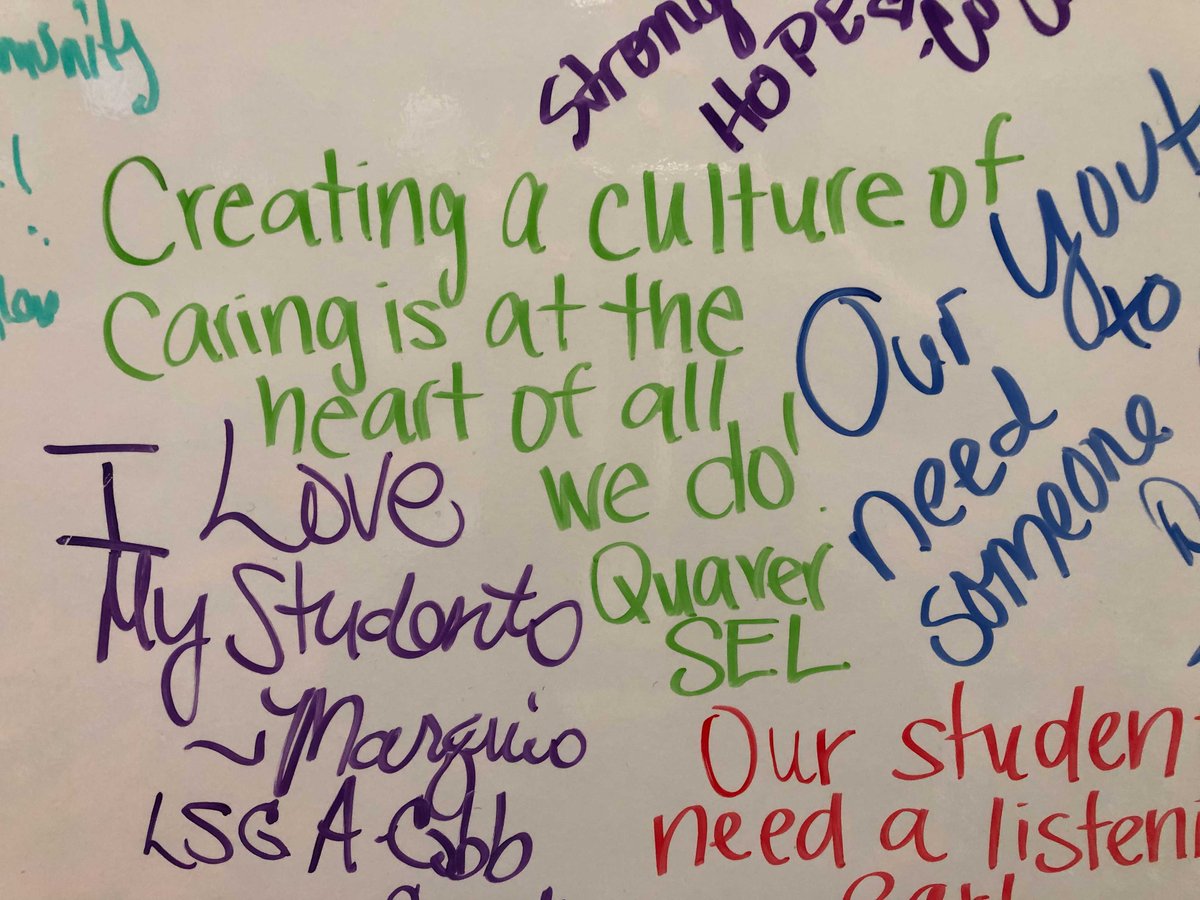 Strong
Hope
Creating a culture of
Caring is at the
heart of all
we do!
Quaver
SEL
I Love
My Students
~Marquio
LSG A Cobb
Our Yout
need to
someone
Our studen
need a listeni